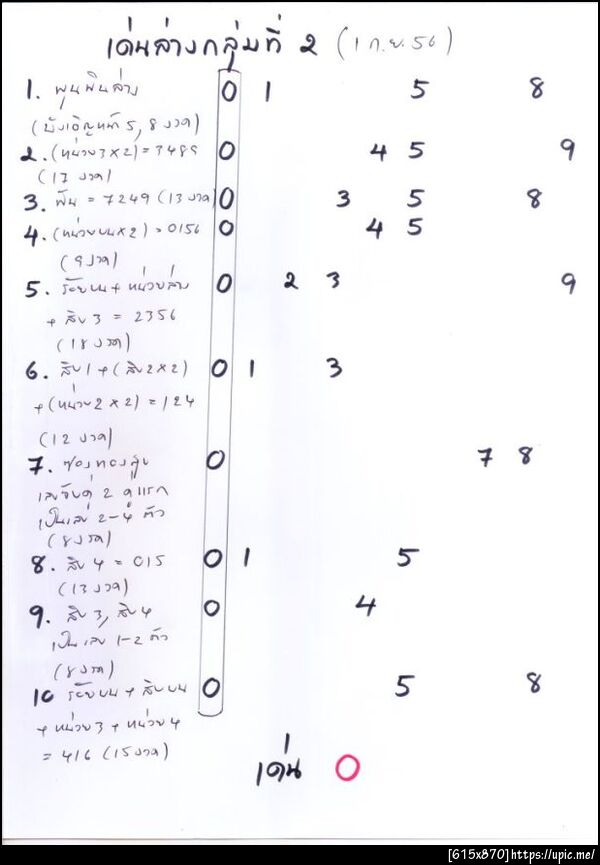 เด่นล่างกลุ่มที่ 2 (1 ก.ย. 56)
1. พูนพินล่าง 0 1 5 8
(บังเอิญหน้า 5, 8 งวด)
2. (หน่วย 3 x 2) = 3489 0 4 5 9
(17 งวด)
3. พัน = 7249 (13 งวด) 0 3 5 8
4. (หน่วยบน x 2) = 0156 0 4 5
(9 งวด)
5. ร้อยบน + หน่วยล่าง 0 2 3 9
+ สิบ 3 = 2356
(18 งวด)
6. สิบ 1 + (สิบ 2 x 2) 0 1 3
+ (หน่วย 2 x 2) = 124
(12 งวด)
7. ซองทอง 0 7 8
เลขจับคู่ 2 คู่แรก
เป็นเลข 2-4 ตัว
(8 งวด)
8. สิบ 4 = 015 0 1 5
(13 งวด)
9. สิบ 3, สิบ 4 0 4
เป็นเลข 1-2 ตัว
(8 งวด)
10 ร้อยบน + สิบบน 0 5 8
+ หน่วย 3 + หน่วย 4
= 416 (15 งวด)
เด่น 0
[615x870]https://upic.me/